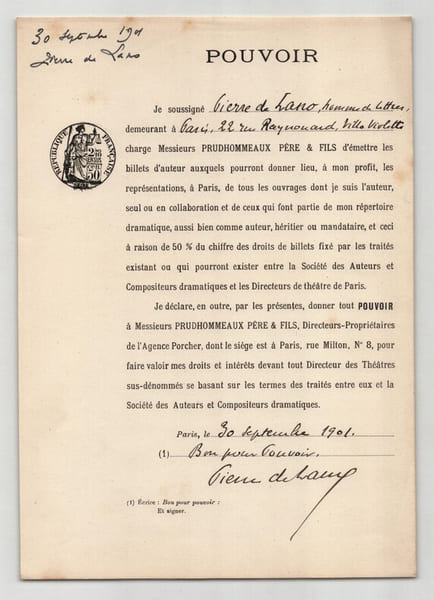 30 Septembre 1901
Pierre de Lano
POUVOIR
Je soussigné Pierre de Lano, homme de lettres,
demeurant à Paris, 22 rue Raynouard, Villa Violette
charge Messieurs PRUDHOMMEAUX PÈRE & FILS d'émettre les
billets d'auteur auxquels pourront donner lieu, à mon profit, les
représentations, à Paris, de tous les ouvrages dont je suis l'auteur,
seul ou en collaboration et de ceux qui font partie de mon répertoire
dramatique, aussi bien comme auteur, héritier ou mandataire, et ceci
à raison de 50 % du chiffre des droits de billets fixé par les traités
existant ou qui pourront exister entre la Société des Auteurs et
Compositeurs dramatiques et les Directeurs de théâtre de Paris.
Je déclare, en outre, par les présentes, donner tout POUVOIR
à Messieurs PRUDHOMMEAUX PÈRE & FILS, Directeurs-Propriétaires
de l'Agence Porcher, dont le siège est à Paris, rue Milton, N° 8, pour
faire valoir mes droits et intérêts devant tout Directeur des Théâtres
sus-dénommés se basant sur les termes des traités entre eux et la
Société des Auteurs et Compositeurs dramatiques.
Paris, le 30 septembre 1901.
(1) Bon pour Pouvoir.
Pierre de Lano
(1) Écrire : Bon pour pouvoir :
Et signer.
RÉPUBLIQUE FRANÇAISE
50